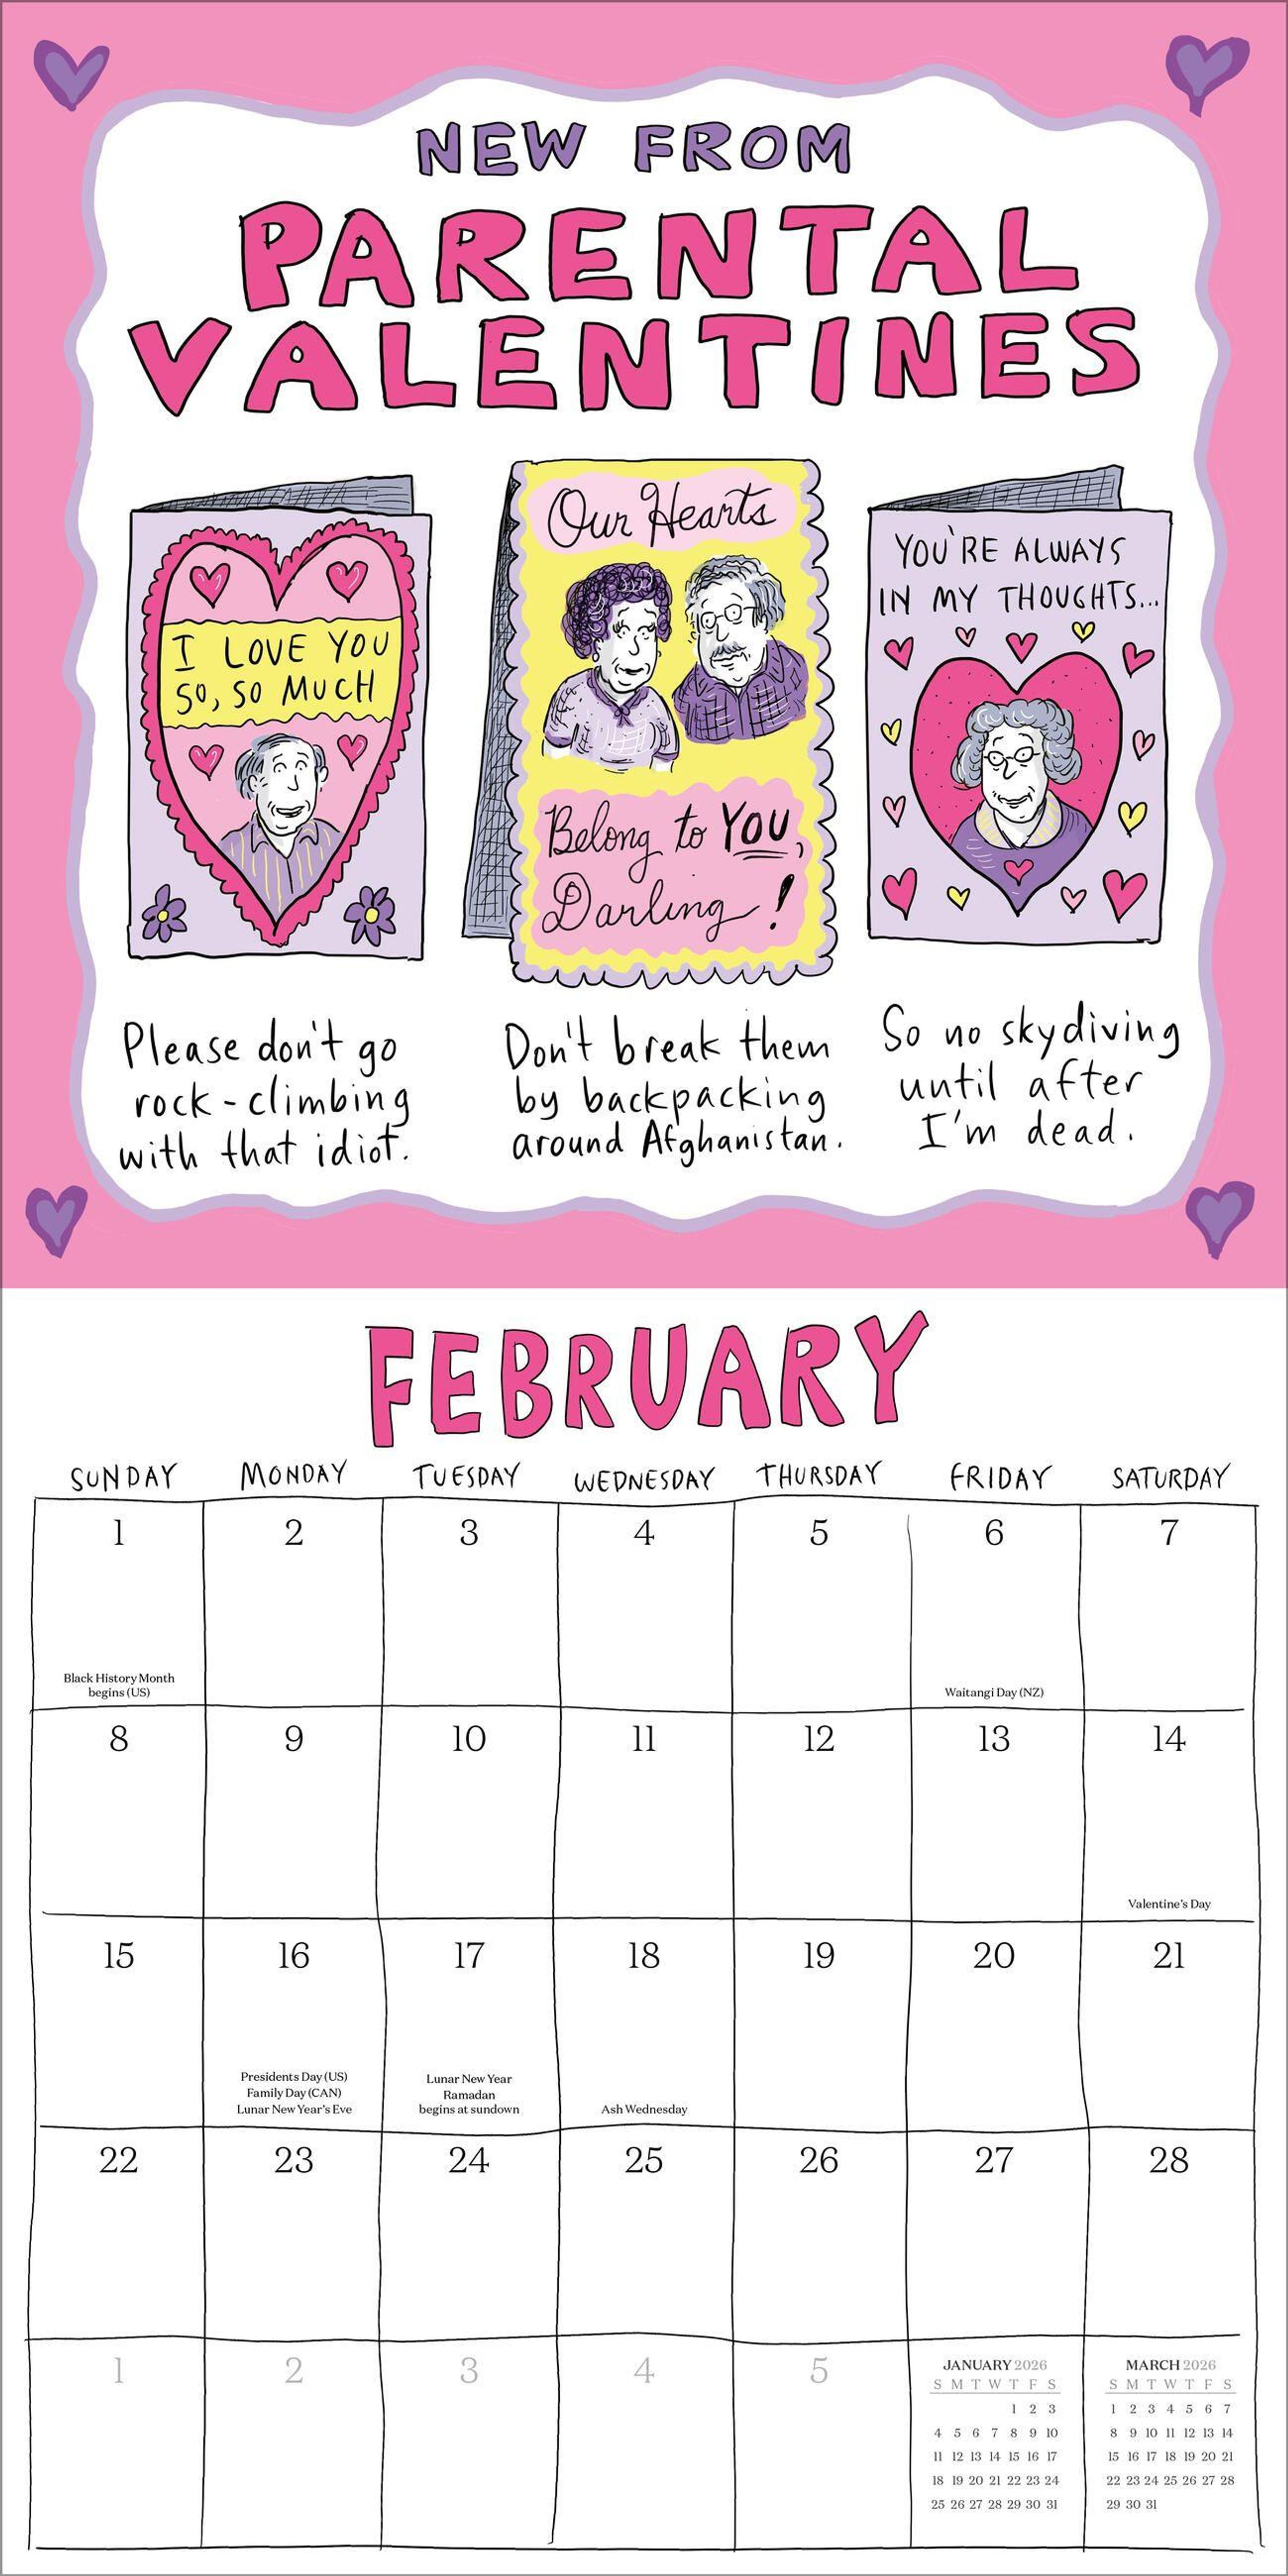 NEW FROM
PARENTAL
VALENTINES
I LOVE YOU
SO, SO MUCH
Please don't go
rock-climbing
with that idiot.
Our Hearts
Belong to YOU,
Darling!
Don't break them
by backpacking
around Afghanistan.
YOU'RE ALWAYS
IN MY THOUGHTS...
So no skydiving
until after
I'm dead.
FEBRUARY
SUNDAY MONDAY TUESDAY WEDNESDAY THURSDAY FRIDAY SATURDAY
1 2 3 4 5 6 7
Black History Month
begins (US)
Waitangi Day (NZ)
8 9 10 11 12 13 14
Valentine's Day
15 16 17 18 19 20 21
Presidents Day (US)
Family Day (CAN)
Lunar New Year's Eve
Lunar New Year
Ramadan
begins at sundown
Ash Wednesday
22 23 24 25 26 27 28
1 2 3 4 5
JANUARY 2026
S M T W T F S
1 2 3
4 5 6 7 8 9 10
11 12 13 14 15 16 17
18 19 20 21 22 23 24
25 26 27 28 29 30 31
MARCH 2026
S M T W T F S
1 2 3 4 5 6 7
8 9 10 11 12 13 14
15 16 17 18 19 20 21
22 23 24 25 26 27 28
29 30 31